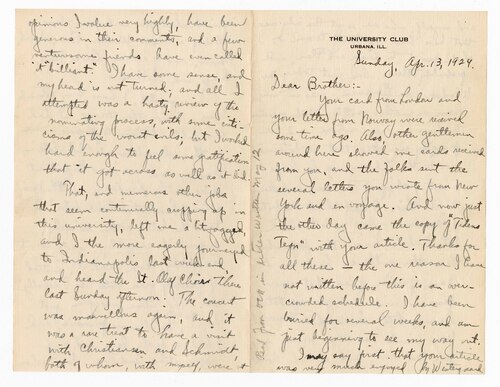 THE UNIVERSITY CLUB
URBANA, ILL.
Sunday, Apr. 13, 1924.
Dear Brother:-
Your card from London and
your letter from Norway were received
some time ago. Also other gentlemen
around here showed me cards received
from you, and the folks sent the
several letters you wrote from New
York and en voyage. And now just
the other day came the copy of "Tidens
Tegn" with your article. Thanks for
all these — the one reason I have
not written before this is an over-
crowded schedule. I have been
buried for several weeks, and am
just beginning to see my way out.
I may say first, that your article
was very much enjoyed by Westergaard
opinions I value very highly, have been
generous in their comments, and a few
venturesome friends have even called
it "brilliant." I have some sense, and
my head is not turned; and all I
attempted was a hasty review of the
nominating process, with some criti-
cisms of the worst evils; but I worked
hard enough to feel some gratification
that it got across as well as it did.
That, and numerous other jobs
that seem continually cropping up in
this university, left me a bit fagged,
and I the more eagerly journeyed
to Indianapolis last weekend,
and heard the St. Olaf Choir there
last Sunday afternoon. The concert
was marvellous again, and it
was a rare treat to have a visit
with Christiansen and Schmidt
both of whom, with myself, were
in letter written May 12